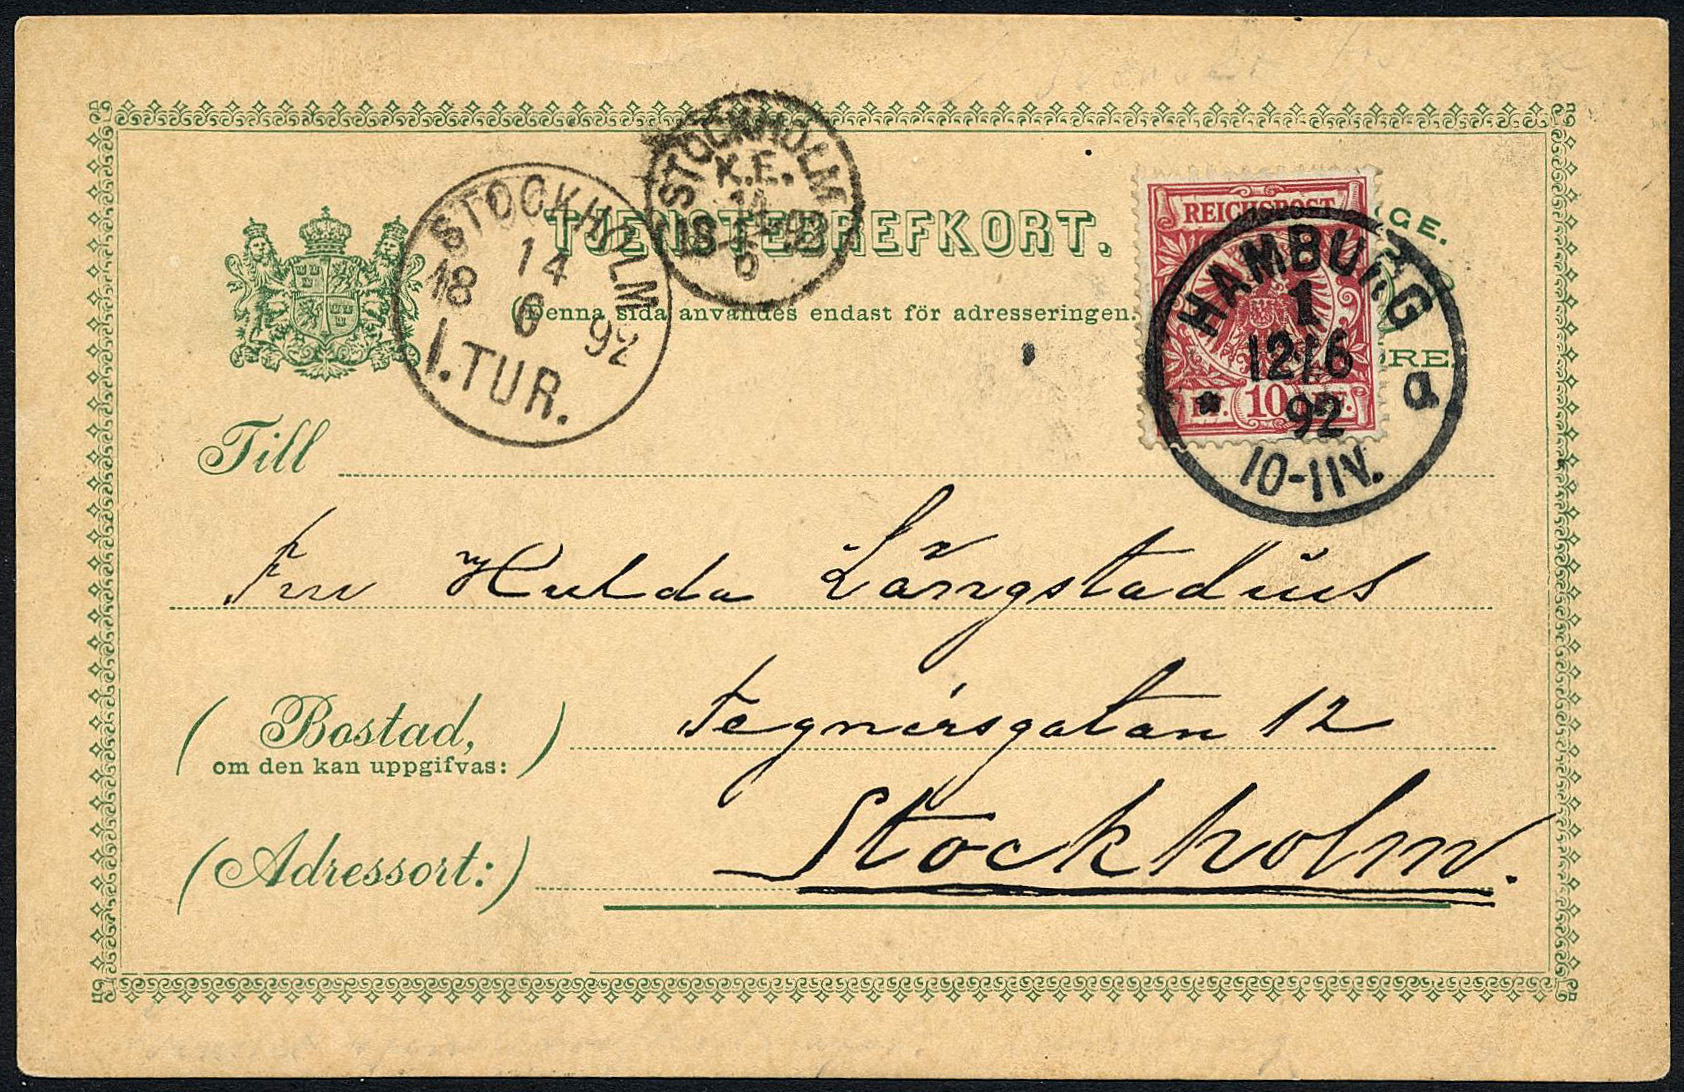 STOCKHOLM
K.E.
14
18 92
6
STOCKHOLM
14
18 6 92
1. TUR.
TJENSTEBREFKORT.
GE.
(Denna sida användes endast för adresseringen.
ÖRE
REICHSPOST
PF. 10 PF.
HAMBURG
1
12/6
92
* a
10-11V.
Till
Fru Hulda Långstadius
Tegnérsgatan 12
(Bostad,)
om den kan uppgifvas:
Stockholm.
(Adressort:)